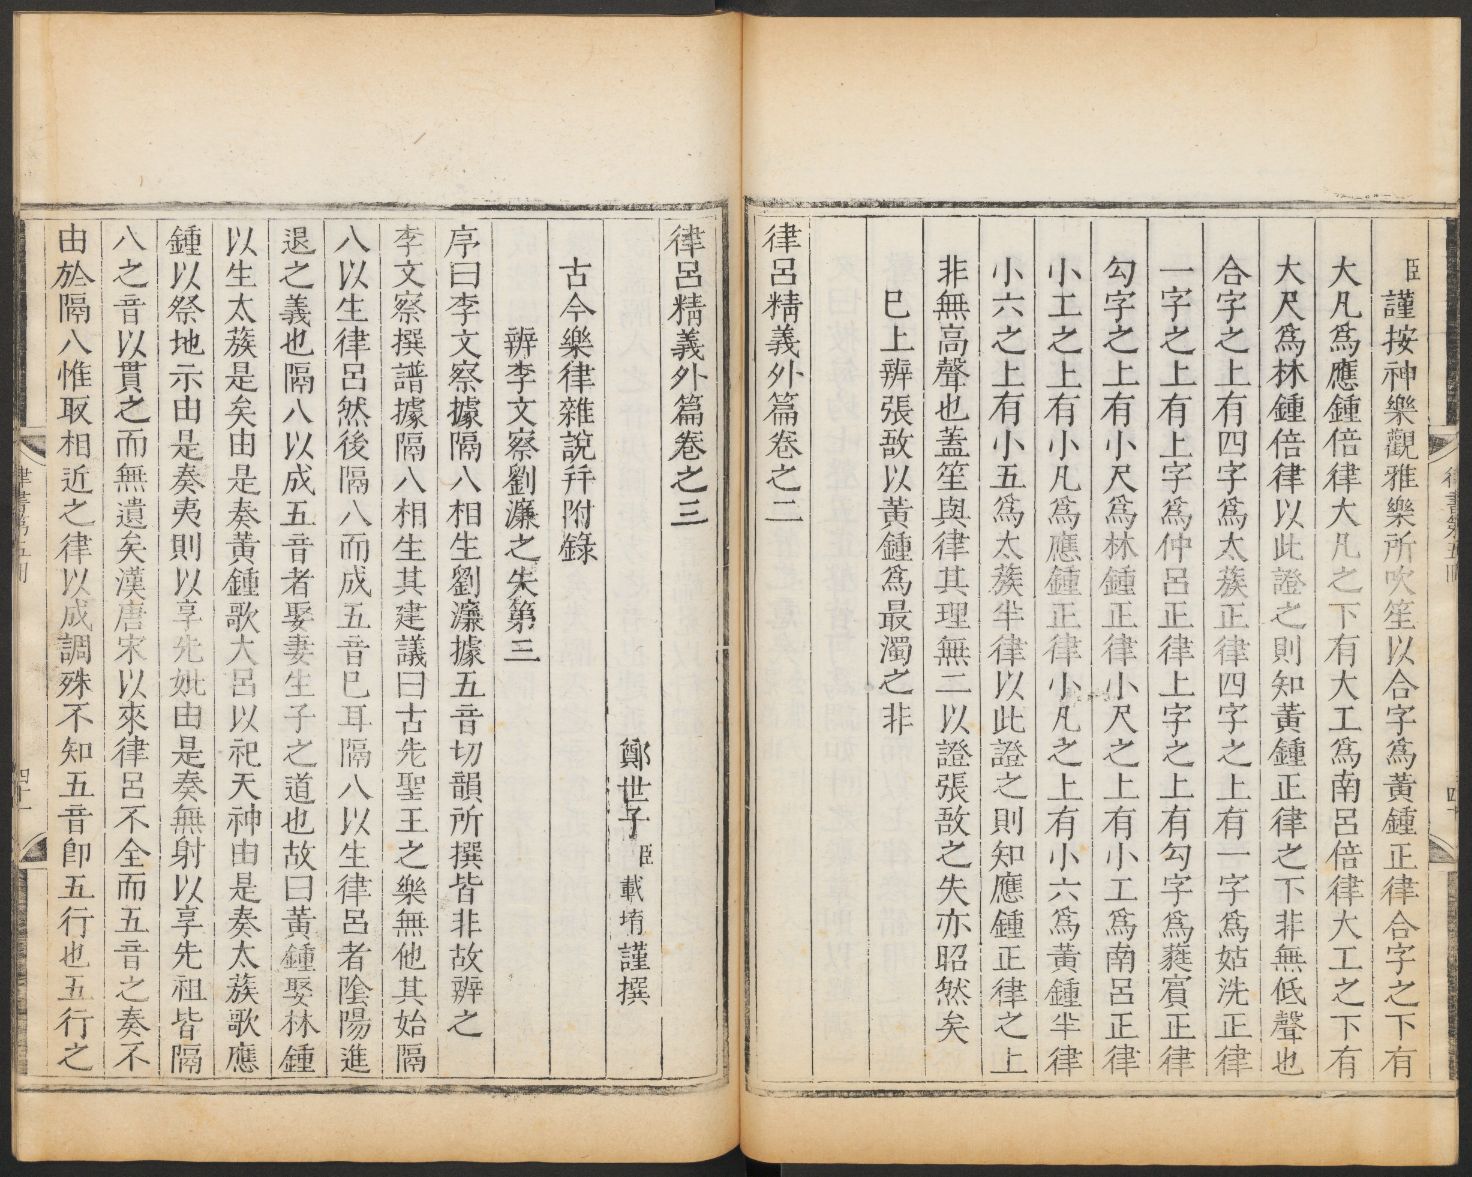 臣謹按神樂觀雅樂所吹笙以合字爲黃鍾正律合字之下有
大凡爲應鍾倍律大凡之下有大工爲南呂倍律大工之下有
大尺爲林鍾倍律以此證之則知黃鍾正律之下非無低聲也
合字之上有四字爲太蔟正律四字之上有一字爲姑洗正律
一字之上有上字爲仲呂正律上字之上有勾字爲蕤賓正律
勾字之上有小尺爲林鍾正律小尺之上有小工爲南呂正律
小工之上有小凡爲應鍾正律小凡之上有小六爲黃鍾半律
小六之上有小五爲太蔟半律以此證之則知應鍾正律之上
非無高聲也蓋笙與律其理無二以證張敔之失亦昭然矣
巳上辨張敔以黃鍾爲最濁之非
律呂精義外篇卷之二
律呂精義外篇卷之三
鄭世子臣載堉謹撰
古今樂律雜說幷附錄
辨李文察劉濂之失第三
序曰李文察據隔八相生劉濂據五音切韻所撰皆非故辨之
李文察撰譜據隔八相生其建議曰古先聖王之樂無他其始隔
八以生律呂然後隔八而成五音巳耳隔八以生律呂者陰陽進
退之義也隔八以成五音者娶妻生子之道也故曰黃鍾娶林鍾
以生太蔟是矣由是奏黃鍾歌大呂以祀天神由是奏太蔟歌應
鍾以祭地示由是奏夷則以享先妣由是奏無射以享先祖皆隔
八之音以貫之而無遺矣漢唐宋以來律呂不全而五音之奏不
由於隔八惟取相近之律以成調殊不知五音卽五行也五行之